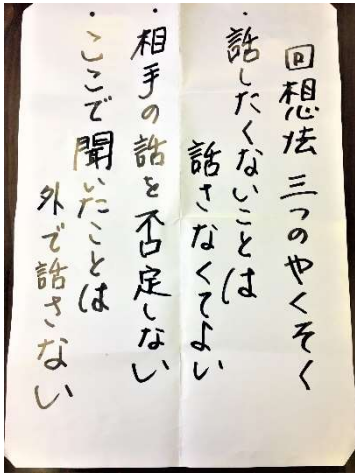 回想法 三つのやくそく
・話したくないことは
話さなくてよい
・相手の話を否定しない
・ここで聞いたことは
外で話さない